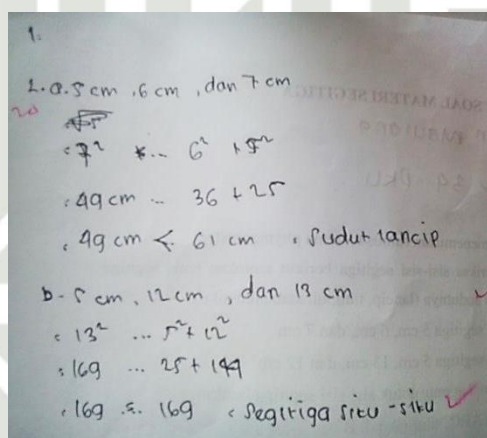 1.
2. a. 5 cm, 6 cm, dan 7 cm
20
= 7² ... 6² + 5²
= 49 cm ... 36 + 25
= 49 cm < 61 cm = Sudut lancip
b. 5 cm, 12 cm, dan 13 cm
= 13² ... 5² + 12²
= 169 ... 25 + 144
= 169 = 169 = Segitiga siku-siku